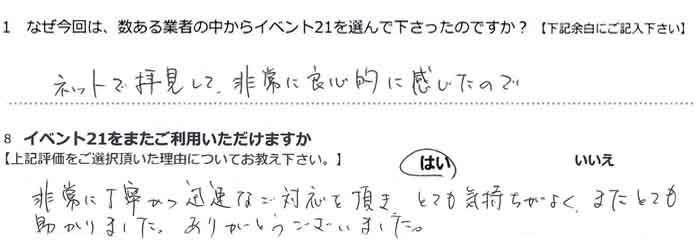 1 なぜ今回は、数ある業者の中からイベント21を選んで下さったのですか？【下記余白にご記入下さい】
ネットで拝見して、非常に良心的に感じたので
8 イベント21をまたご利用いただけますか
【上記評価をご選択頂いた理由についてお教え下さい。】 はい いいえ
非常に丁寧かつ迅速なご対応を頂き、とても気持ちがよく、またとても
助かりました。ありがとうございました。